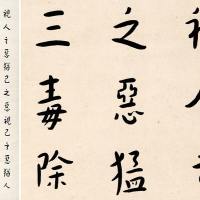 之惡猛
三毒除
視人之惡猶己之惡視己之惡猶人